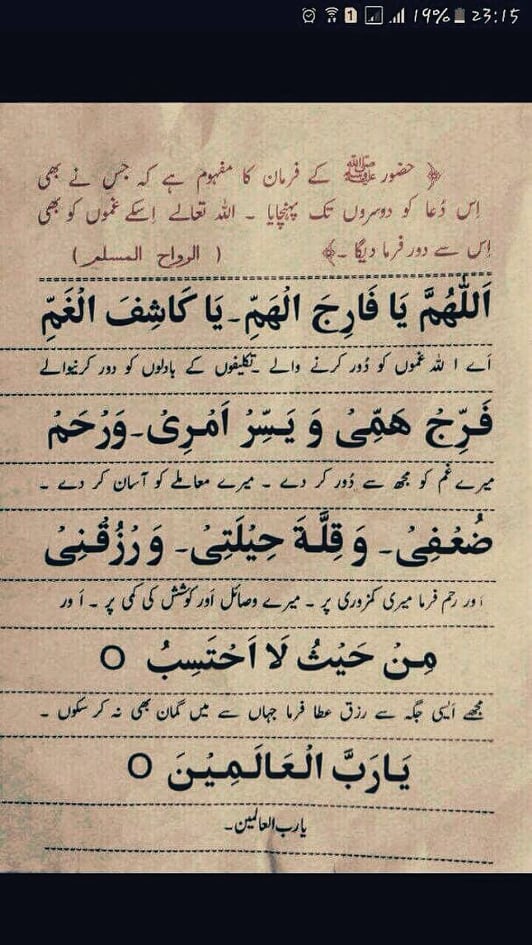 19% 23:15
﴿ حضور ﷺ کے فرمان کا مفہوم ہے کہ جس نے بھی
اِس دُعا کو دوسروں تک پہنچایا ۔ اللہ تعالے اِسکے غموں کو بھی
اِس سے دور فرما دیگا ۔﴾ ( الرواح المسلم )
اَللّٰهُمَّ يَا فَارِجَ الْهَمِّ ۔ يَا كَاشِفَ الْغَمِّ
اَے ا للہ غموں کو دُور کرنے والے ۔ تکلیفوں کے بادلوں کو دور کرنیوالے
فَرِّجْ هَمِّىْ وَ يَسِّرْ اَمْرِىْ ۔ وَرْحَمْ
میرے غم کو مجھ سے دُور کر دے ۔ میرے معاملے کو آسان کر دے ۔
ضُعْفِىْ ۔ وَ قِلَّةَ حِيْلَتِىْ ۔ وَرْزُقْنِىْ
اور رحم فرما میری کمزوری پر ۔ میرے وصائل اَور کوشش کی کمی پر ۔ اَور
مِنْ حَيْثُ لَا اَحْتَسِبُ O
مجھے اَیسی جگہ سے رزق عطا فرما جہاں سے میں گمان بھی نہ کر سکوں ۔
يَارَبَّ الْعَالَمِيْنَ O
یارب العالمین۔